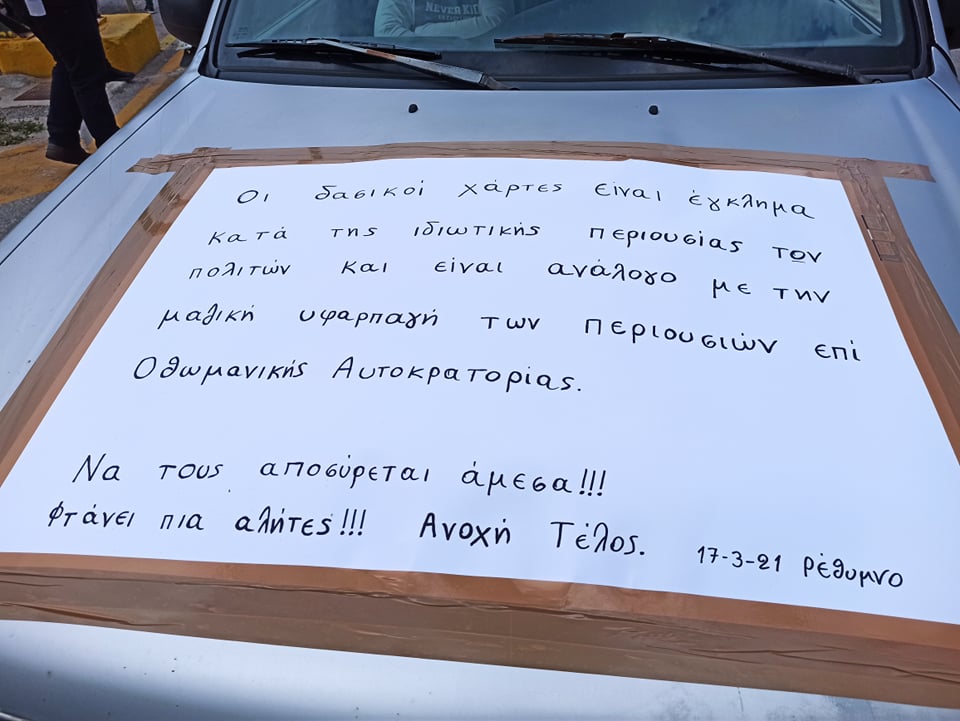 NEVER
Οι δασικοί χάρτες είναι έγκλημα
κατά της ιδιωτικής περιουσίας τον
πολιτών και είναι ανάλογο με την
μαθική υφαρπαγή των περιουσιών επί
Οθωμανικής Αυτοκρατορίας.
Να τους αποσύρεται άμεσα!!!
Φτάνει πια αλήτες!!! Ανοχή Τέλος.
17-3-21 Ρέθυμνο